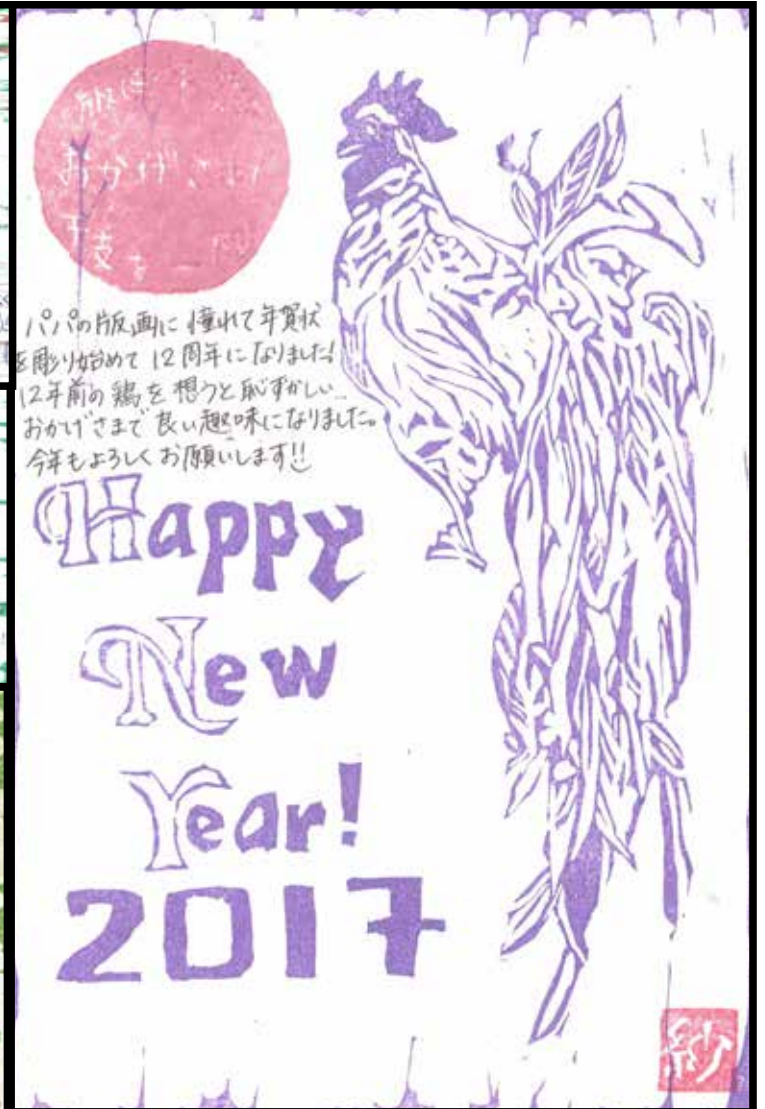 版は
おかげさま
干支を一
パパの版画に憧れて年賀状
を彫り始めて12周年になりました!
12年前の鶏を想うと恥ずかしい…
おかげさまで良い趣味になりました。
今年もよろしくお願いします!!
Happy
New
Year!
2017
紗